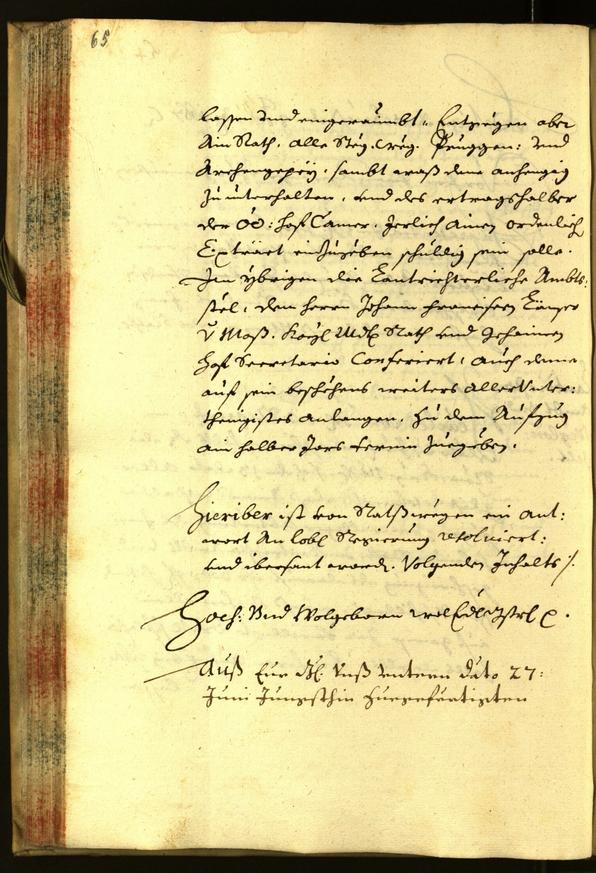 65
lassen und eingeraumbt. Entgegen aber
Ain Rath. alle Steg. weg. Pruggen: und
Archengepey. sambt waß deme anhengig
zu unterhalten, und des ertragshalber
der OÖ: hof Camer. Jerlich ainen ordenlich
Extract einzugeben schuldig sein solle.
Im ybrigen die Lantrichterliche Ambts
stel, dem herrn Johann Francisco
V Mast. Kayl: Rath und gehaimen
hof Secretario Conferiert, auch deme
auf sein beschehens weiters Allerunter:
thenigistes anlangen, zu dem Aufzug
ain halber Jars termin zuegeben.
Hieriber ist von Ratswegen ein ant:
wort an lobl Regierung resolviert:
und ibersant word. Volgenden Inhalts ./.
Hoch: Und Wolgeborn
Auß Eur Unß untern dato 27:
Juni Jungsthin zuegefertigten